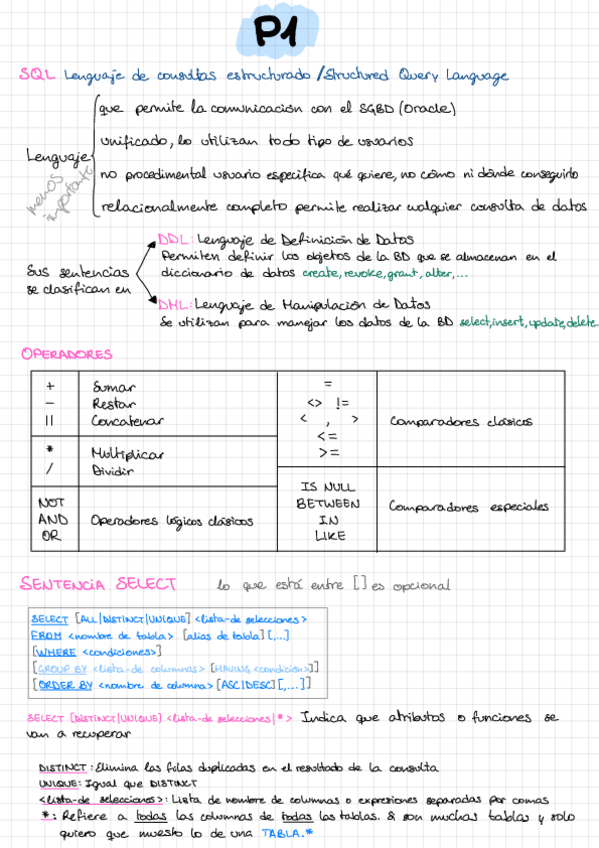 P1
SQL Lenguaje de consultas estructurado / Structured Query Language
que permite la comunicación con el SGBD (Oracle)
unificado, lo utilizan todo tipo de usuarios
Lenguaje
no procedimental usuario especifica qué quiere, no cómo ni dónde conseguirlo
menos importante
relacionalmente completo permite realizar cualquier consulta de datos
DDL: Lenguaje de Definición de Datos
Permiten definir los objetos de la BD que se almacenan en el
Sus sentencias
diccionario de datos create, revoke, grant, alter,...
se clasifican en
DML: Lenguaje de Manipulación de Datos
Se utilizan para manejar los datos de la BD select, insert, update, delete.
OPERADORES
+ Sumar
- Restar
|| Concatenar
* Multiplicar
/ Dividir
NOT
AND Operadores lógicos clásicos
OR
=
<> !=
< , > Comparadores clásicos
<=
>=
IS NULL
BETWEEN Comparadores especiales
IN
LIKE
SENTENCIA SELECT lo que está entre [] es opcional
SELECT [ALL|DISTINCT|UNIQUE] <lista-de selecciones>
FROM <nombre de tabla> [alias de tabla][,...]
[WHERE <condiciones>]
[GROUP BY <lista-de columnas> [HAVING <condición>]]
[ORDER BY <nombre de columna> [ASC|DESC][,...]]
SELECT [DISTINCT|UNIQUE] <lista-de selecciones|*> Indica que atributos o funciones se
van a recuperar
DISTINCT: Elimina las filas duplicadas en el resultado de la consulta
UNIQUE: Igual que DISTINCT
<lista-de selecciones>: Lista de nombre de columnas o expresiones separadas por comas
*: Refiere a todas las columnas de todas las tablas. Si son muchas tablas y solo
quiero que muestre lo de una TABLA.*